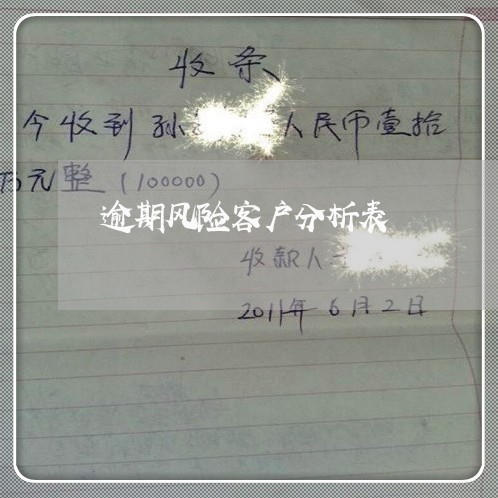 收条
今收到孙 人民币壹拾
万元整(100000)
逾期风险客户分析表
收款人
2011年6月2日